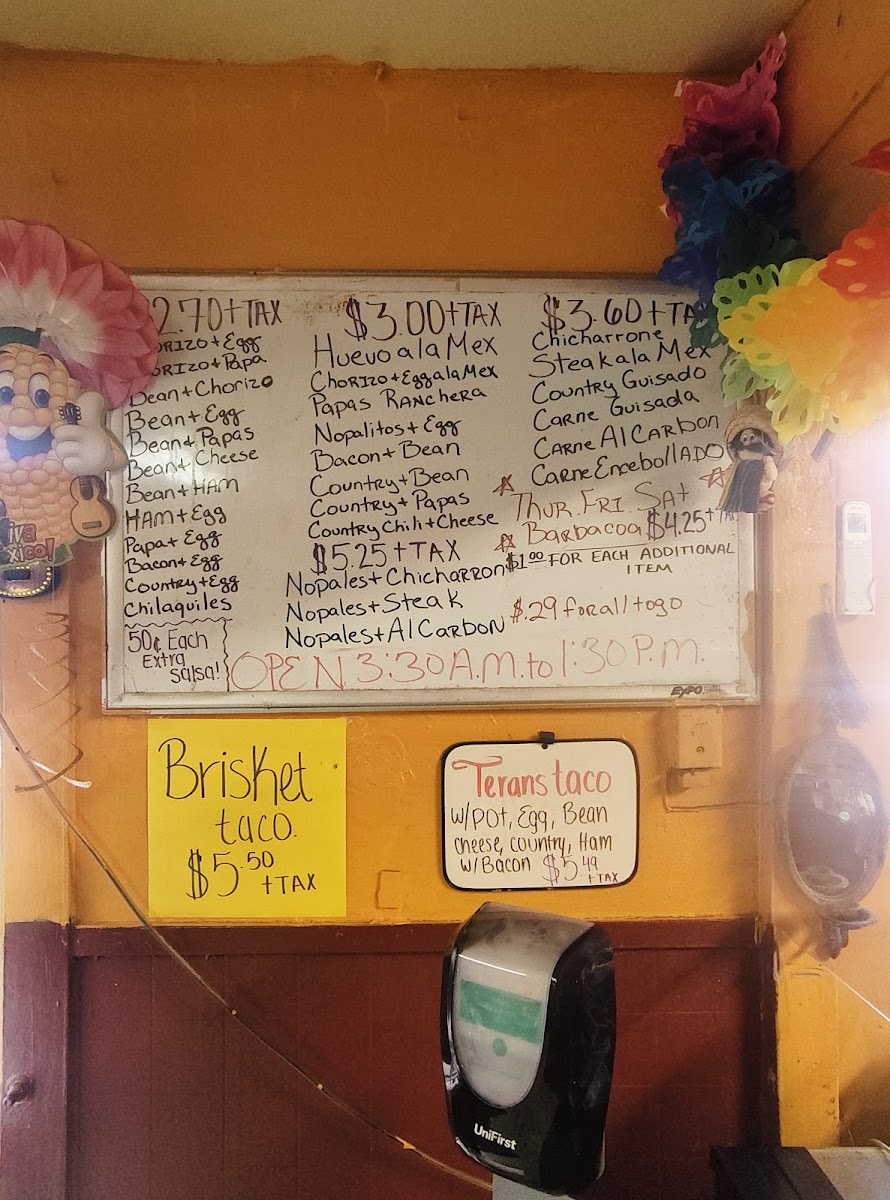 2.70+TAX
ORIZO+Egg
ORIZO+Papa
Bean+Chorizo
Bean+Egg
Bean+Papas
Bean+Cheese
Bean+HAM
HAM+Egg
Papa+Egg
Bacon+Egg
Country+Egg
Chilaquiles
50¢ Each
Extra
Salsa!
$3.00+TAX
Huevo a la Mex
Chorizo+Egg a la Mex
Papas Ranchera
Nopalitos+Egg
Bacon+Bean
Country+Bean
Country+Papas
Country Chili+Cheese
$5.25+TAX
Nopales+Chicharron
Nopales+Steak
Nopales+Al Carbon
$3.60+TA
Chicharrone
Steak a la Mex
Country Guisado
Carne Guisada
Carne Al Carbon
Carne EncebollADO
Thur. Fri. Sat
Barbacoa $4.25+TA
$1.00 FOR EACH ADDITIONAL
ITEM
$.29 for all togo
OPEN 3:30 A.M. to 1:30 P.M.
EXPO
iva
xico!
Brisket
taco.
$5.50
+TAX
Terans taco
w/POt, Egg, Bean
cheese, country, Ham
w/Bacon $5.49
+TAX
UniFirst